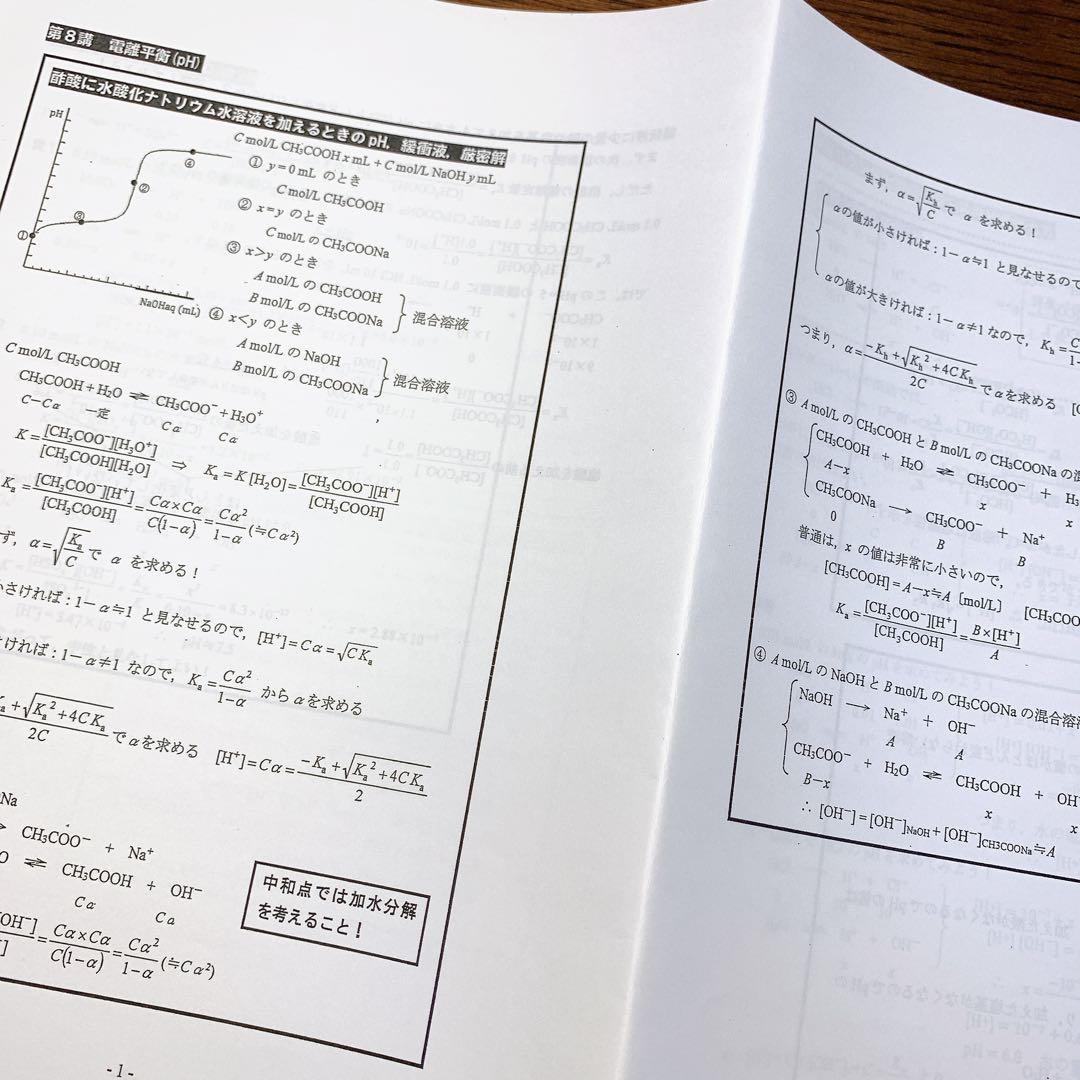 第8講 電離平衡(pH)
酢酸に水酸化ナトリウム水溶液を加えるときのpH，緩衝液，厳密解
pH
C mol/L CH₃COOH x mL + C mol/L NaOH y mL
① y=0 mL のとき
C mol/L CH₃COOH
② x=y のとき
C mol/L の CH₃COONa
③ x>y のとき
A mol/L の CH₃COOH
B mol/L の CH₃COONa
混合溶液
④ x<y のとき
A mol/L の NaOH
B mol/L の CH₃COONa
混合溶液
① ③ ② ④
NaOHaq (mL)
C mol/L CH₃COOH
CH₃COOH + H₂O ⇌ CH₃COO⁻ + H₃O⁺
C−Cα 一定 Cα Cα
K = [CH₃COO⁻][H₃O⁺] / [CH₃COOH][H₂O] ⇒ Kₐ = K [H₂O] = [CH₃COO⁻][H⁺] / [CH₃COOH]
Kₐ = [CH₃COO⁻][H⁺] / [CH₃COOH] = Cα×Cα / C(1−α) = Cα² / 1−α (≒Cα²)
ず，α=√(Kₐ/C) で α を求める！
小さければ：1−α≒1 と見なせるので，[H⁺]=Cα=√(CKₐ)
ければ：1−α≠1 なので，Kₐ = Cα² / 1−α からαを求める
+√(Kₐ²+4CKₐ) / 2C でαを求める [H⁺]=Cα= −Kₐ+√(Kₐ²+4CKₐ) / 2
Na
CH₃COO⁻ + Na⁺
O ⇌ CH₃COOH + OH⁻
Cα Cα
OH⁻] / ] = Cα×Cα / C(1−α) = Cα² / 1−α (≒Cα²)
中和点では加水分解
を考えること！
- 1 -
まず，α=√(Kₕ/C) で α を求める！
αの値が小さければ：1−α≒1 と見なせるので
αの値が大きければ：1−α≠1 なので，Kₕ = C / 1−
つまり，α= −Kₕ+√(Kₕ²+4CKₕ) / 2C でαを求める [
③ A mol/L の CH₃COOH と B mol/L の CH₃COONa の混
CH₃COOH + H₂O ⇌ CH₃COO⁻ + H₃
A−x x x
CH₃COONa → CH₃COO⁻ + Na⁺
0 B B
普通は，x の値は非常に小さいので，
[CH₃COOH]=A−x≒A〔mol/L〕 [CH₃COO
Kₐ = [CH₃COO⁻][H⁺] / [CH₃COOH] = B×[H⁺] / A
④ A mol/L の NaOH と B mol/L の CH₃COONa の混合溶
NaOH → Na⁺ + OH⁻
A A
CH₃COO⁻ + H₂O ⇌ CH₃COOH + OH
B−x x x
∴ [OH⁻]=[OH⁻]NaOH+[OH⁻]CH3COONa≒A